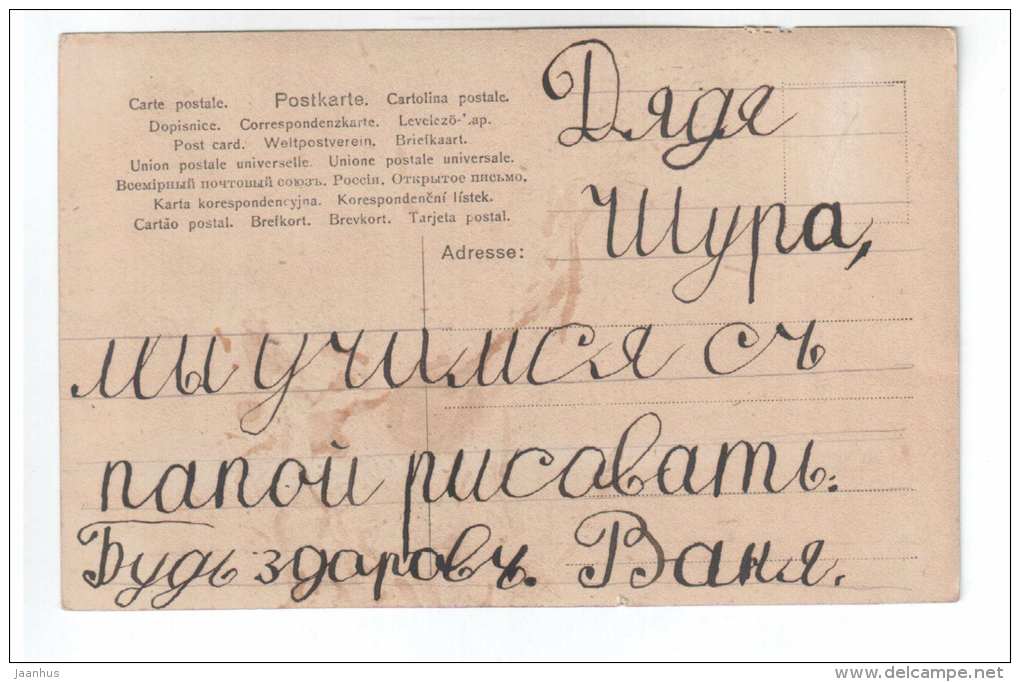 Carte postale. Postkarte. Cartolina postale.
Dopisnice. Correspondenzkarte. Levelező-Lap.
Post card. Weltpostverein. Briefkaart.
Union postale universelle. Unione postale universale.
Всемірный почтовый союзъ. Россія. Открытое письмо.
Karta korespondencyjna. Korespondenční lístek.
Cartão postal. Brefkort. Brevkort. Tarjeta postal.
Adresse:
Дядя
Шура,
мы учимся съ
папой рисовать.
Будь здаровъ. Ваня.
jaanhus
www.delcampe.net